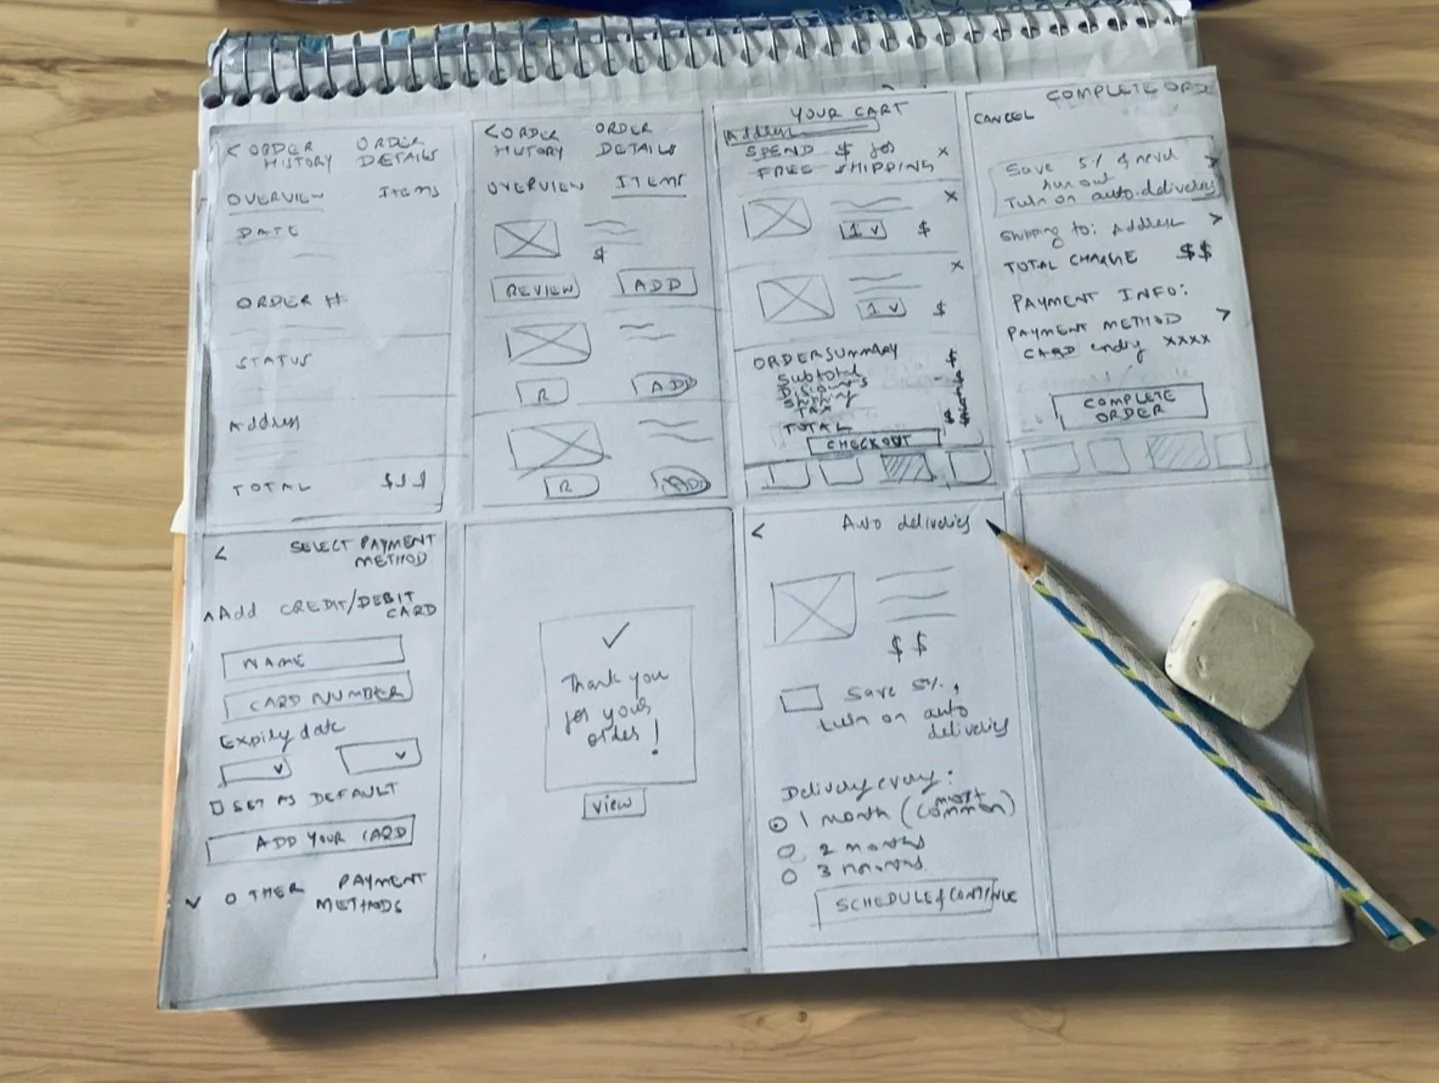 < ORDER HISTORY
ORDER DETAILS
OVERVIEW ITEMS
DATE
ORDER #
STATUS
Address
TOTAL $$$
< ORDER HISTORY
ORDER DETAILS
OVERVIEW ITEMS
$
REVIEW ADD
R ADD
R ADD
YOUR CART
Address
SPEND $ for
FREE SHIPPING x
x
1 v $
x
1 v $
ORDER SUMMARY $
Subtotal
TAX
TOTAL $
CHECKOUT
COMPLETE ORD
CANCEL
Save 5% & never >
run out
Turn on auto-delivery
Shipping to: Address >
TOTAL CHARGE $$
PAYMENT INFO:
PAYMENT METHOD >
CARD ending XXXX
COMPLETE
ORDER
< SELECT PAYMENT
METHOD
^ Add CREDIT/DEBIT
CARD
NAME
CARD NUMBER
Expiry date
v v
SET AS DEFAULT
ADD YOUR CARD
v OTHER PAYMENT
METHODS
✓
Thank you
for your
order!
View
< Auto delivery
$$
Save 5%,
turn on auto
delivery
Delivery every:
1 month (most
common)
2 months
3 months
SCHEDULE & CONTINUE